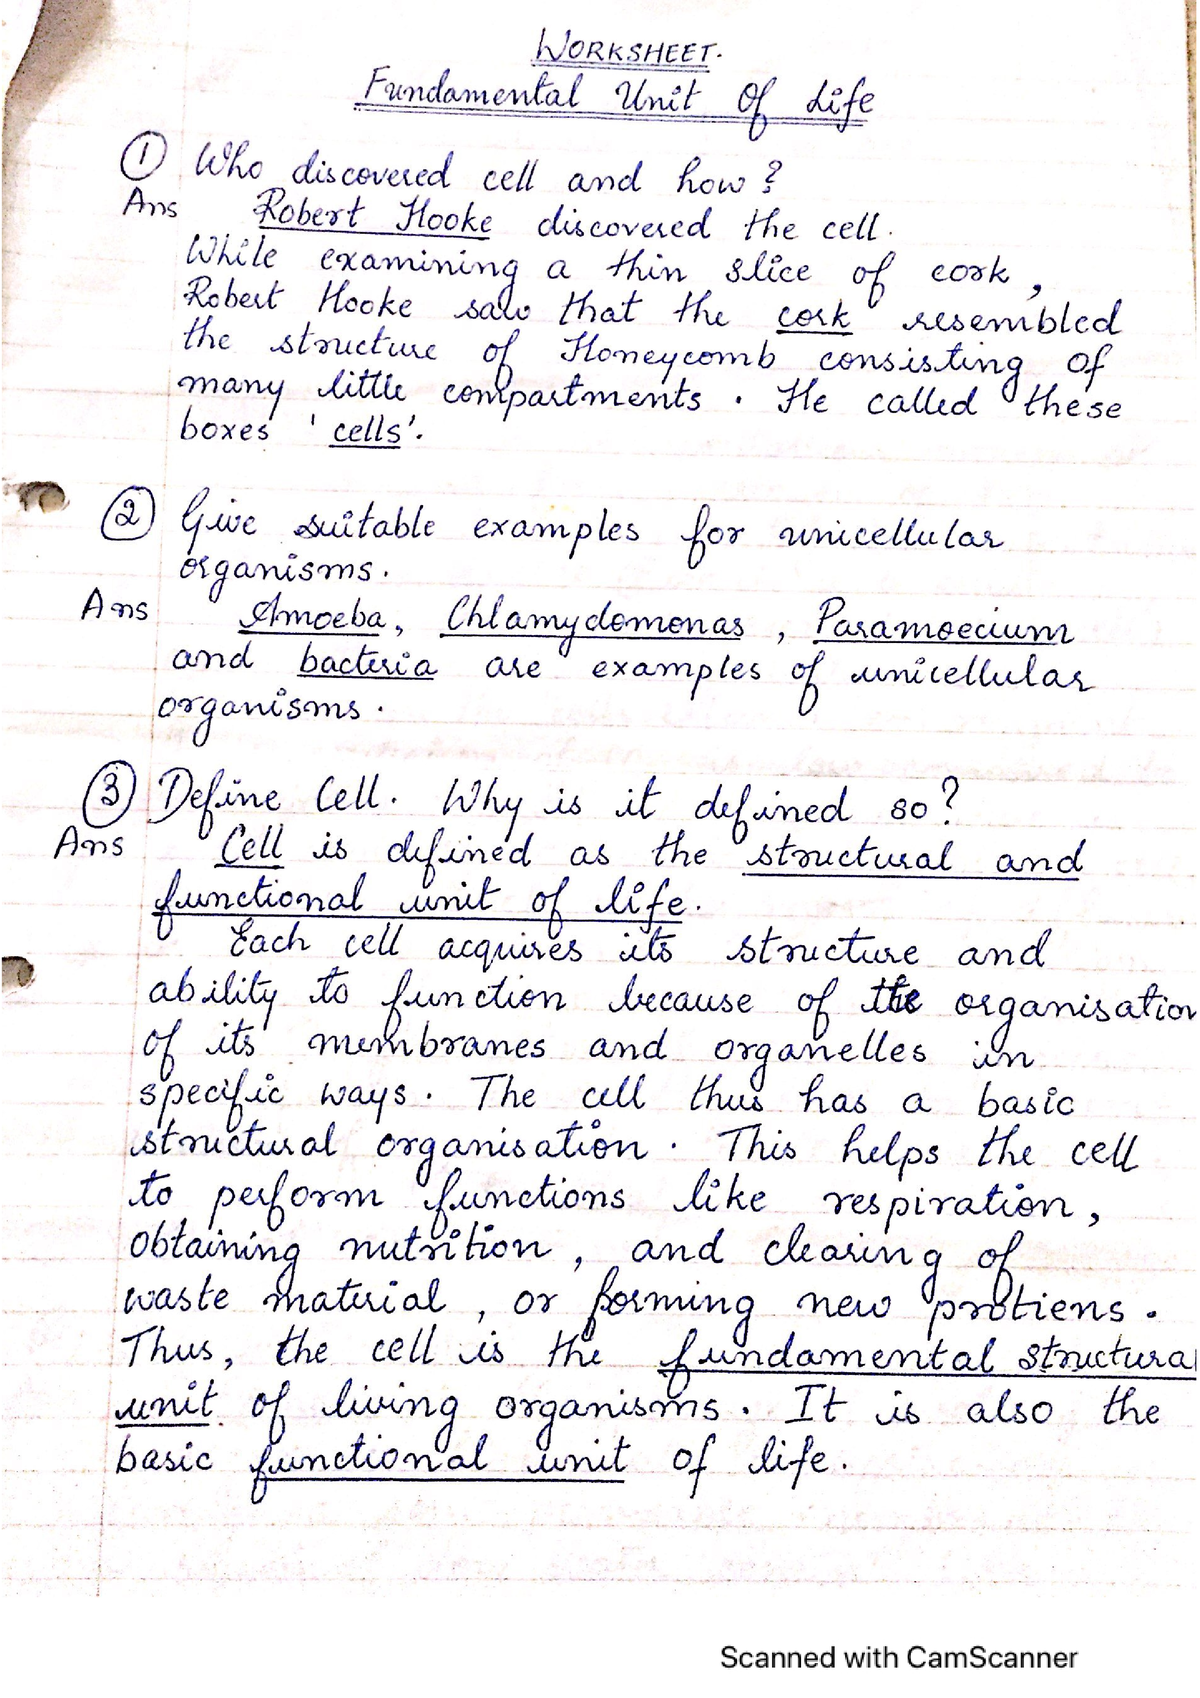 WORKSHEET.
Fundamental Unit Of Life
① Who discovered cell and how?
Ans Robert Hooke discovered the cell.
While examining a thin slice of cork,
Robert Hooke saw that the cork resembled
the structure of Honeycomb consisting of
many little compartments. He called these
boxes 'cells'.
② Give suitable examples for unicellular
organisms.
Ans Amoeba, Chlamydomonas, Paramoecium
and bacteria are examples of unicellular
organisms.
③ Define Cell. Why is it defined so?
Ans Cell is defined as the structural and
functional unit of life.
Each cell acquires its structure and
ability to function because of the organisation
of its membranes and organelles in
specific ways. The cell thus has a basic
structural organisation. This helps the cell
to perform functions like respiration,
obtaining nutrition, and clearing of
waste material, or forming new protiens.
Thus, the cell is the fundamental structural
unit of living organisms. It is also the
basic functional unit of life.
Scanned with CamScanner